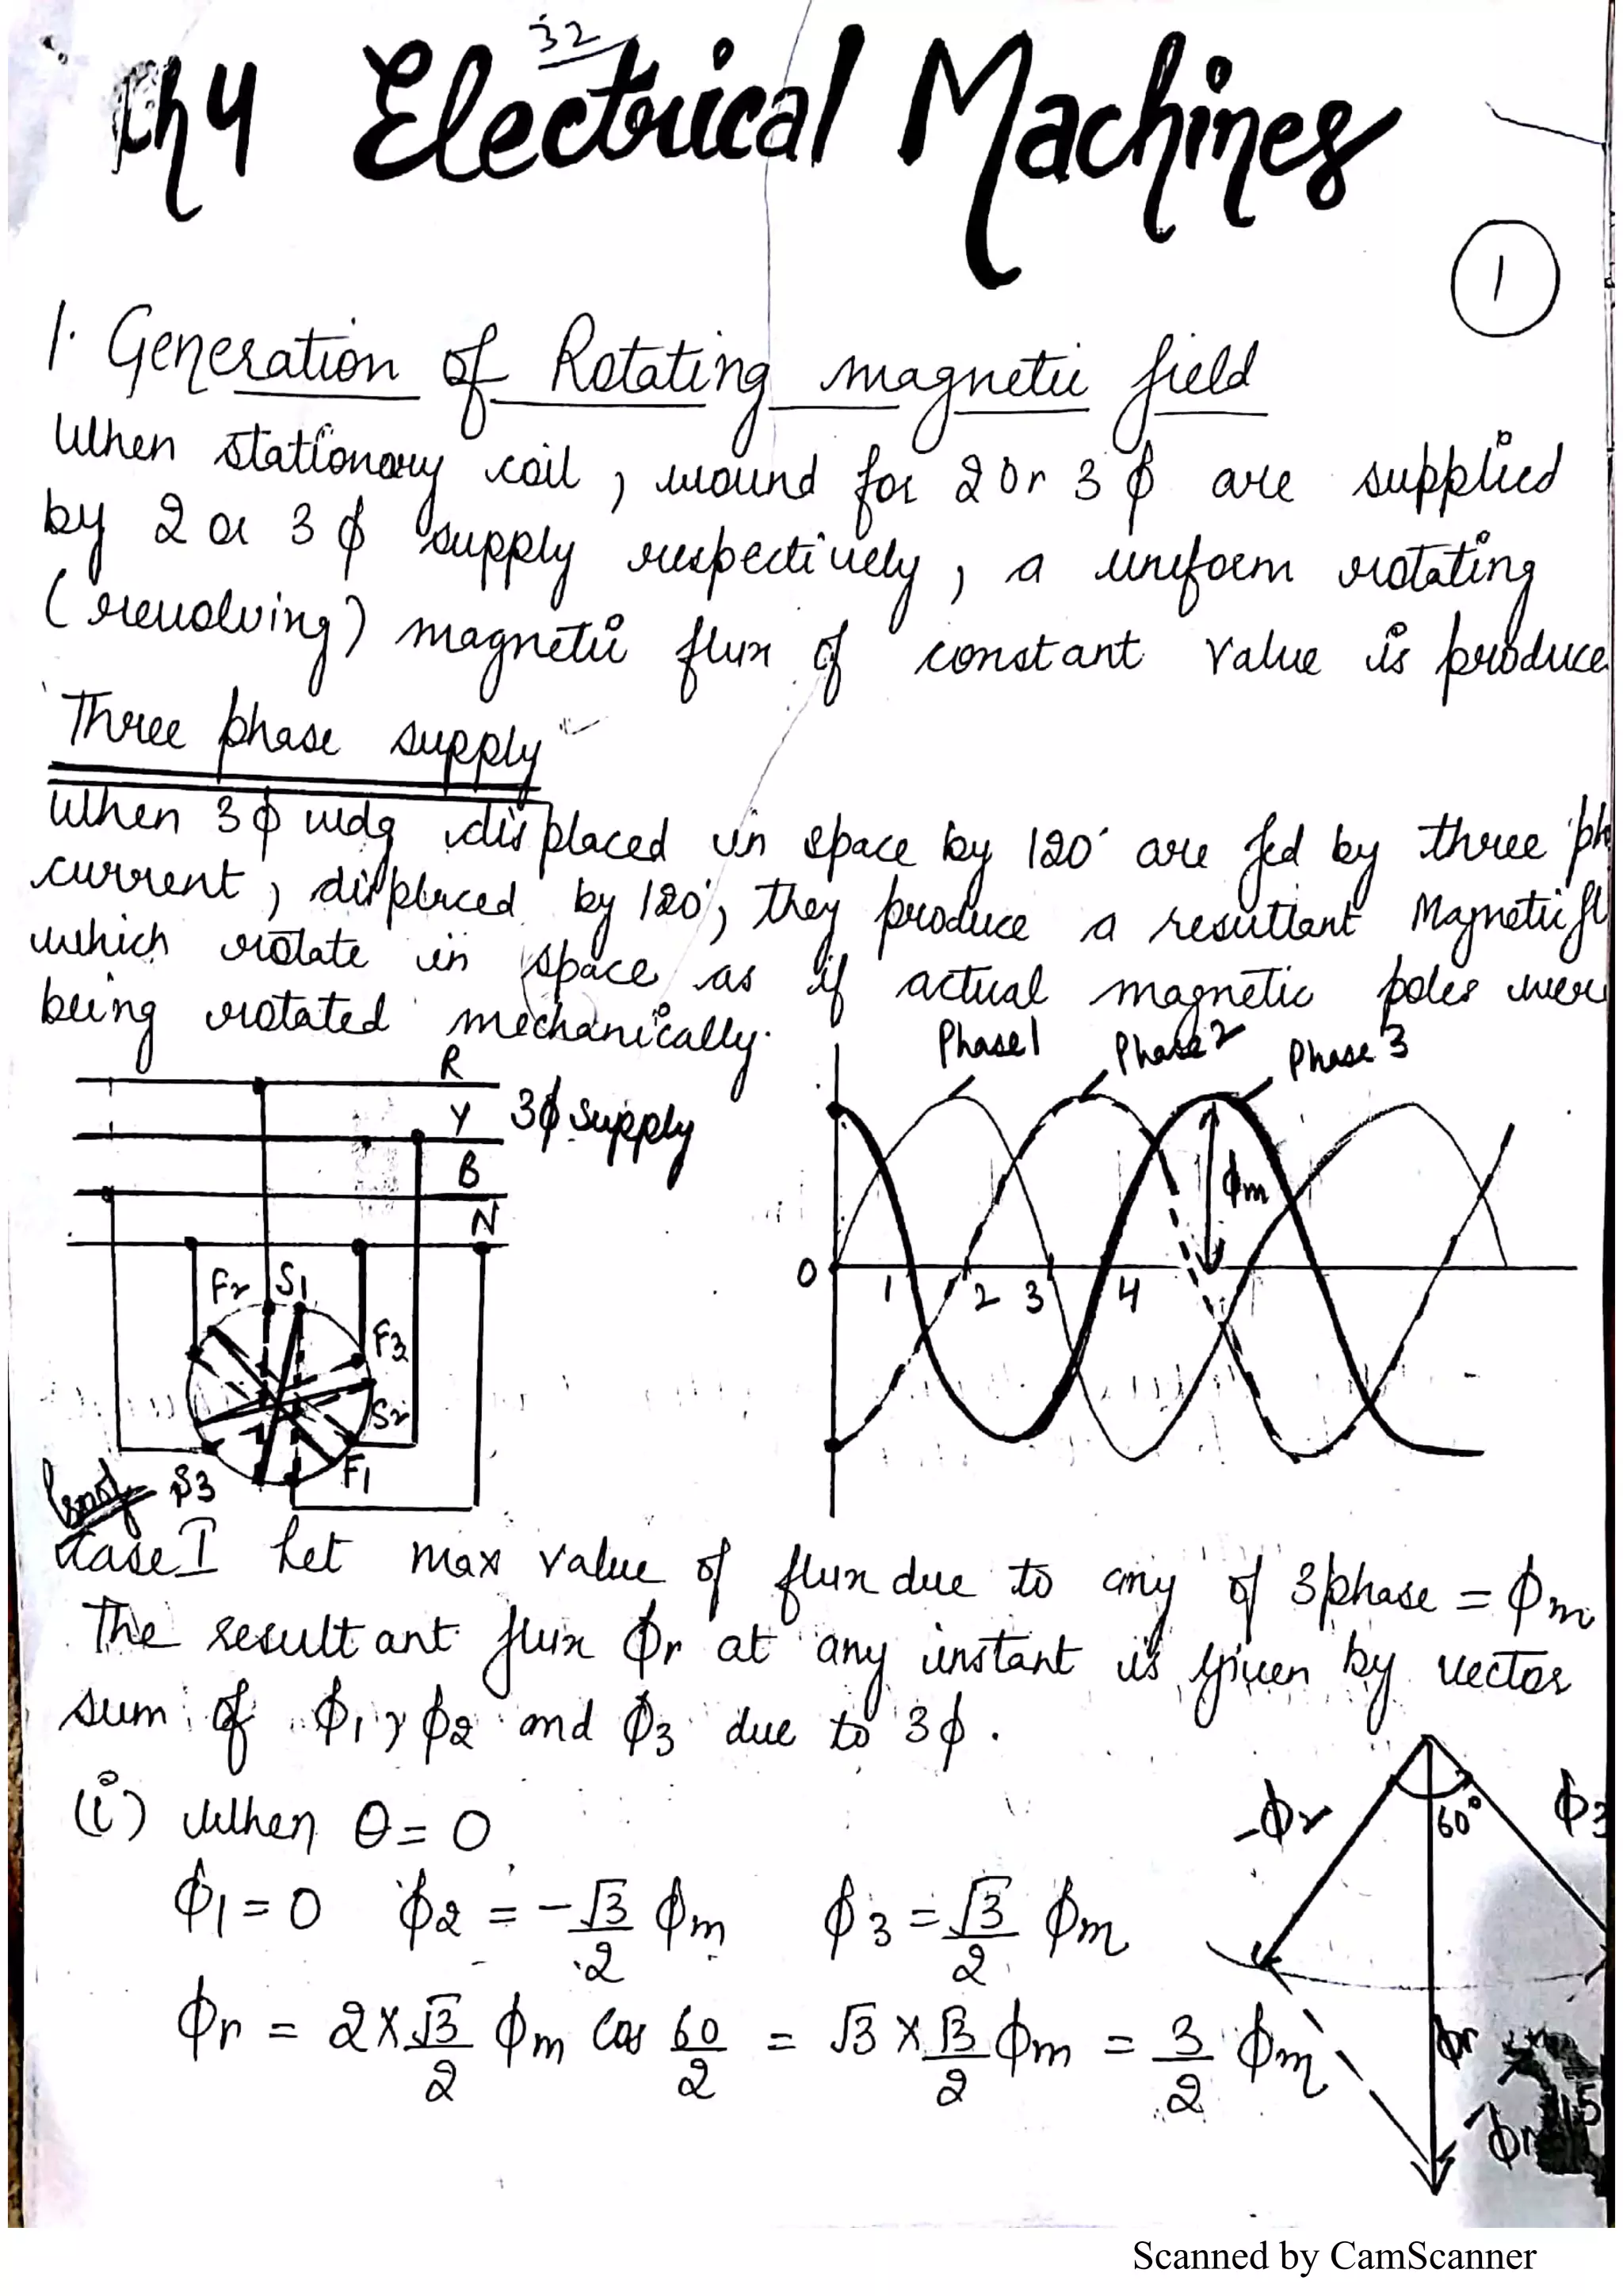 32
Ch 4 Electrical Machines
1
1. Generation of Rotating magnetic field
When stationary coil, wound for 2 or 3 ϕ are supplied
by 2 or 3 ϕ supply respectively, a uniform rotating
(revolving) magnetic flux of constant value is produce
Three phase supply
When 3 ϕ wdg displaced in space by 120° are fed by three ph
current, displaced by 120°, they produce a resultant Magnetic fl
which rotate in space as if actual magnetic poles wer
being rotated mechanically.
R
Y
B
N
3ϕ supply
F2 S1
F3
S2
F1
S3
Phase 1
Phase 2
Phase 3
ϕm
0 1 2 3 4
Case I Let max value of flux due to any of 3 phase = ϕm
The resultant flux ϕr at any instant is given by vector
sum of ϕ1, ϕ2 and ϕ3 due to 3ϕ.
(i) When θ = 0
ϕ1 = 0 ϕ2 = -√3/2 ϕm ϕ3 = √3/2 ϕm
ϕr = 2 x √3/2 ϕm Cos 60/2 = √3 x √3/2 ϕm = 3/2 ϕm
60°
ϕ3
ϕr
Scanned by CamScanner